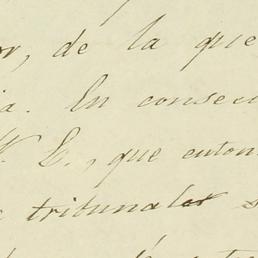 or, de la que
ia. En consecu
V. E., que enton
tribunales